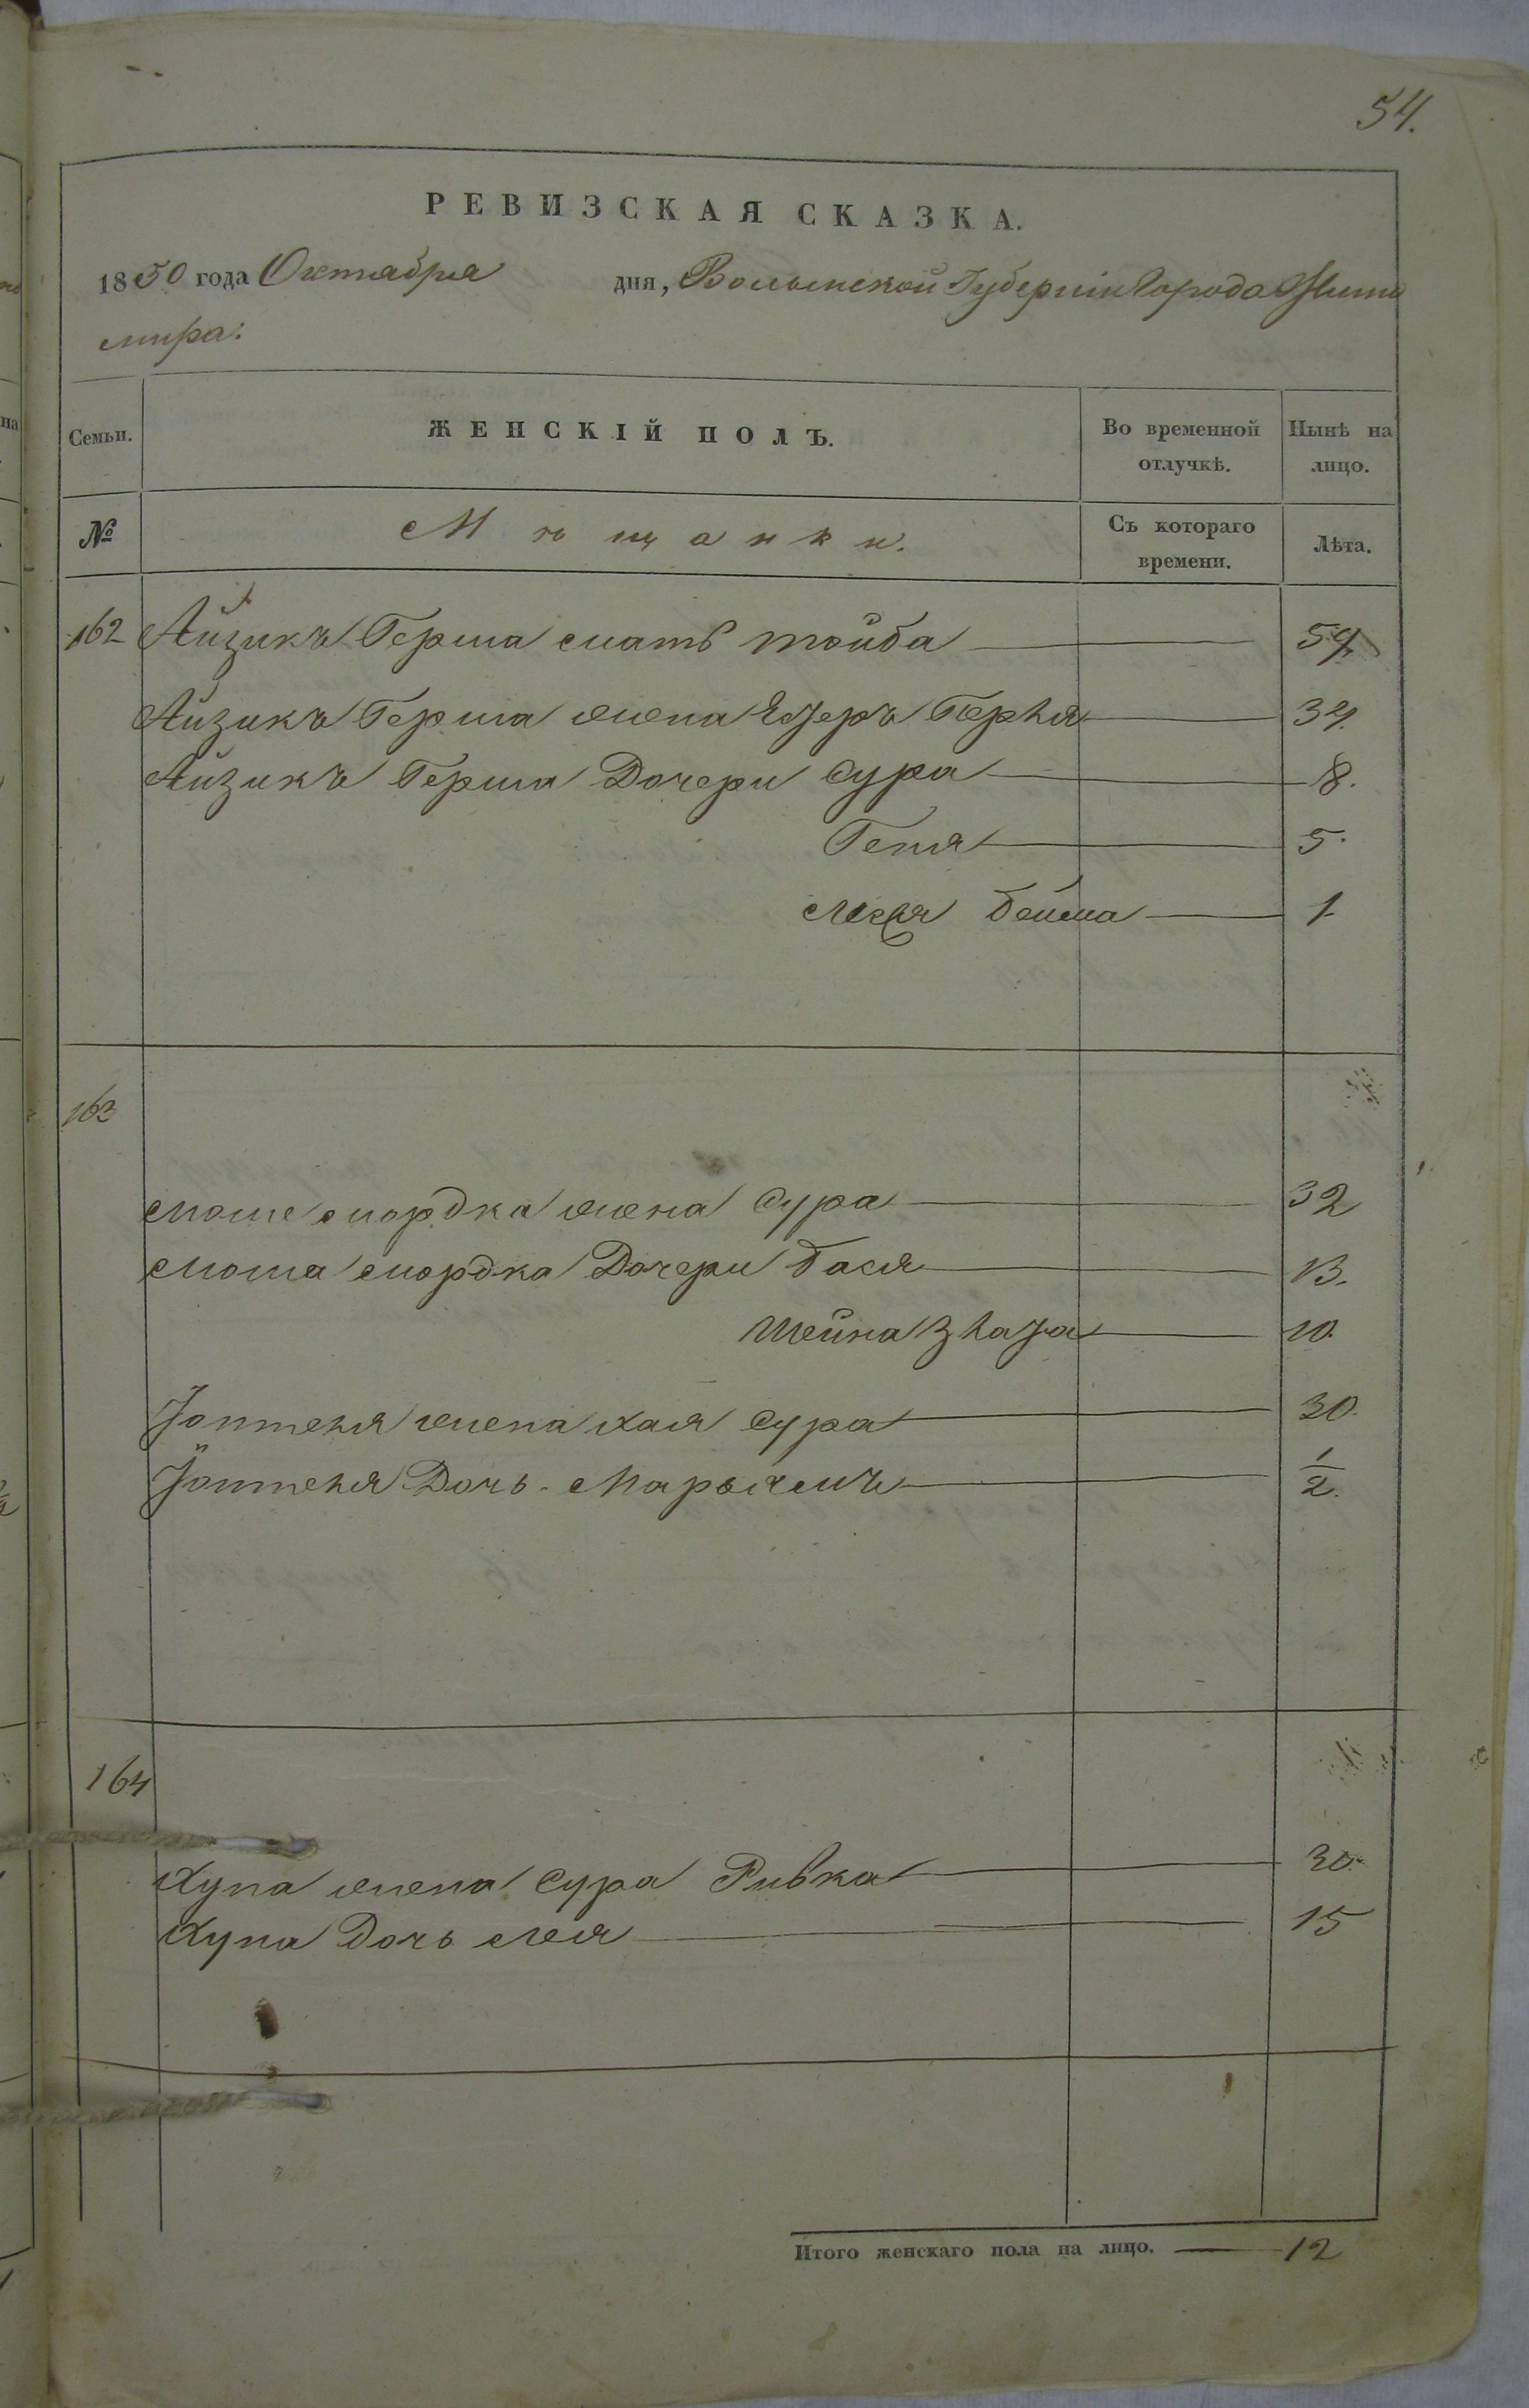 54.
РЕВИЗСКАЯ СКАЗКА.
1850 года Октября дня, Волынской Губерніи Города Жито
мира:
Семьи. ЖЕНСКІЙ ПОЛЪ. Во временной отлучкѣ. Нынѣ на лицо.
№ Мѣщанки. Съ котораго времени. Лѣта.
162 Айзикъ Герша мать тойба 59
Айзикъ Герша жена Естеръ Перля 34.
Айзикъ Герша Дочери Сура 8.
Геня 5.
Бейла 1
163
Моше мордка жена Сура 32
Моша мордка Дочери Бася 13.
Шейна Злата 10.
жена хая Сура 30.
Дочь Марьямъ 1/2.
164
Хуна жена Сура Ривка 30.
Хуна Дочь Лея 15
Итого женскаго пола на лицо. 12